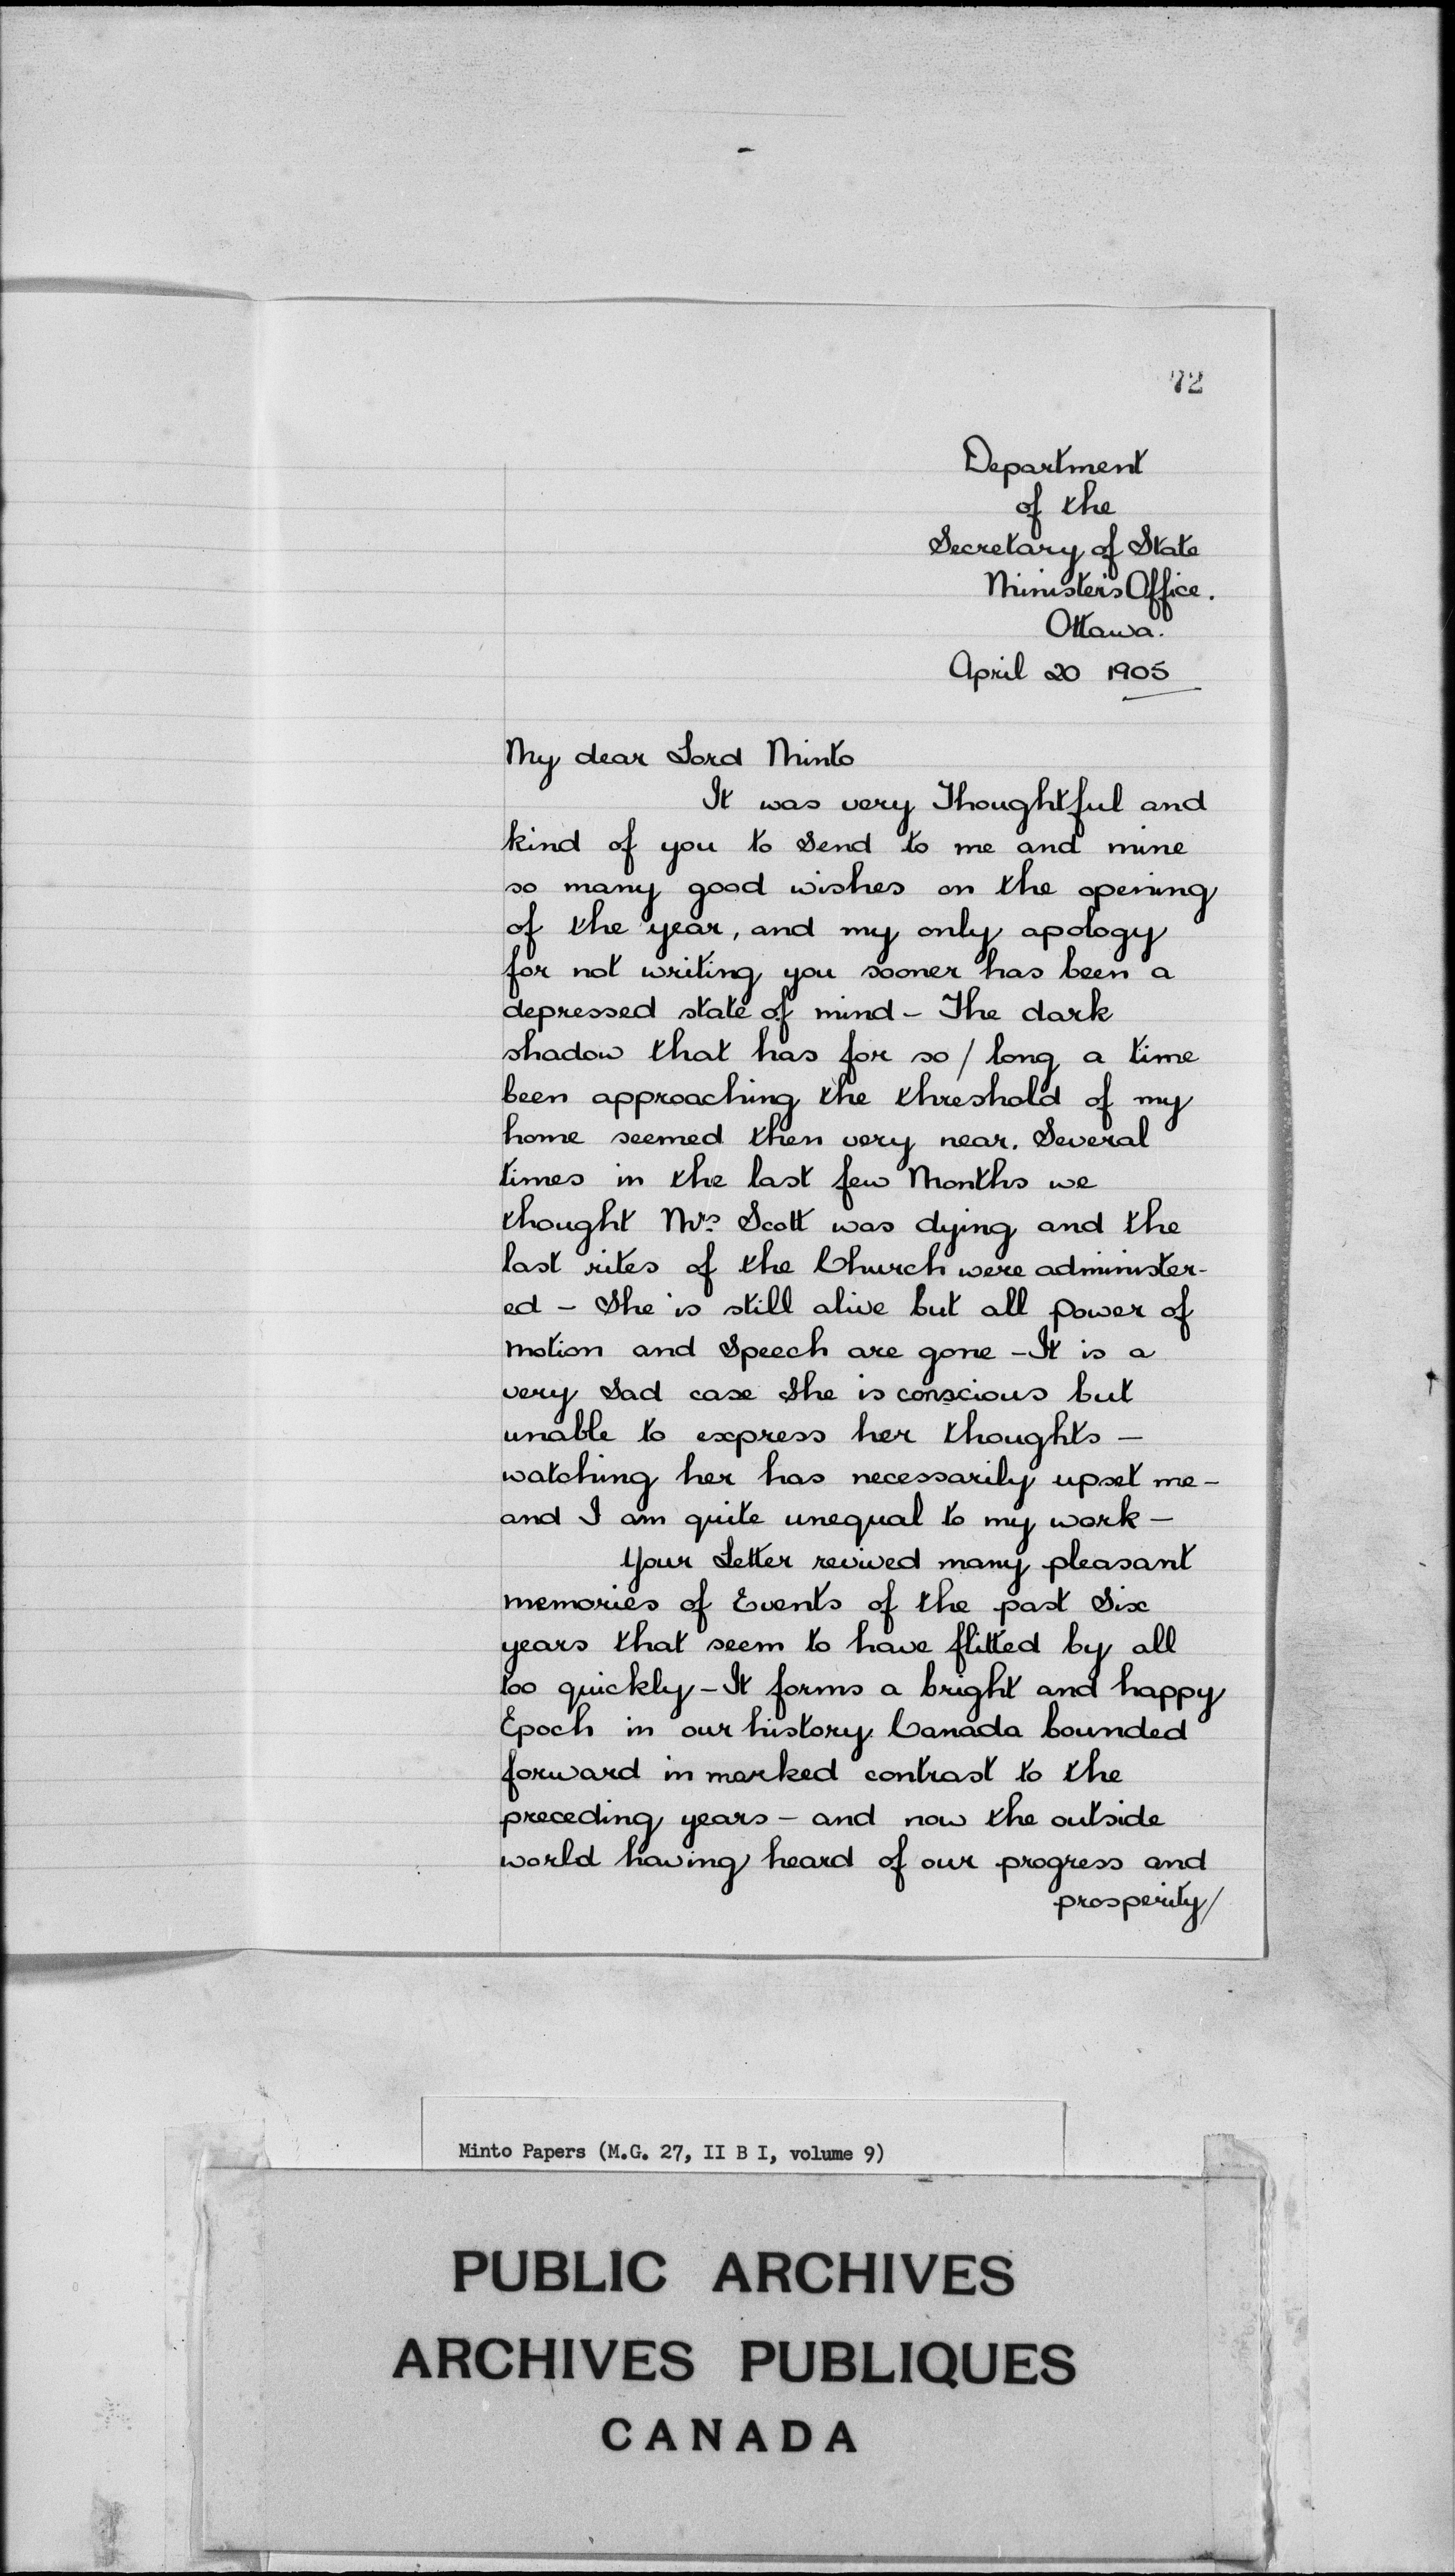 72
Department
of the
Secretary of State
Minister's Office.
Ottawa.
April 20 1905
My dear Lord Minto
It was very Thoughtful and
kind of you to Send to me and mine
so many good wishes on the opening
of the year, and my only apology
for not writing you sooner has been a
depressed state of mind - The dark
shadow that has for so / long a time
been approaching the threshold of my
home seemed then very near. Several
times in the last few Months we
thought Mrs. Scott was dying and the
last rites of the Church were administer-
ed - She is still alive but all Power of
Motion and Speech are gone - It is a
very Sad case She is conscious but
unable to express her thoughts -
watching her has necessarily upset me -
and I am quite unequal to my work -
Your Letter revived many pleasant
memories of Events of the past Six
years that seem to have flitted by all
too quickly - It forms a bright and happy
Epoch in our history Canada bounded
forward in marked contrast to the
preceding years - and now the outside
world having heard of our progress and
prosperity/
Minto Papers (M.G. 27, II B I, volume 9)
PUBLIC ARCHIVES
ARCHIVES PUBLIQUES
CANADA